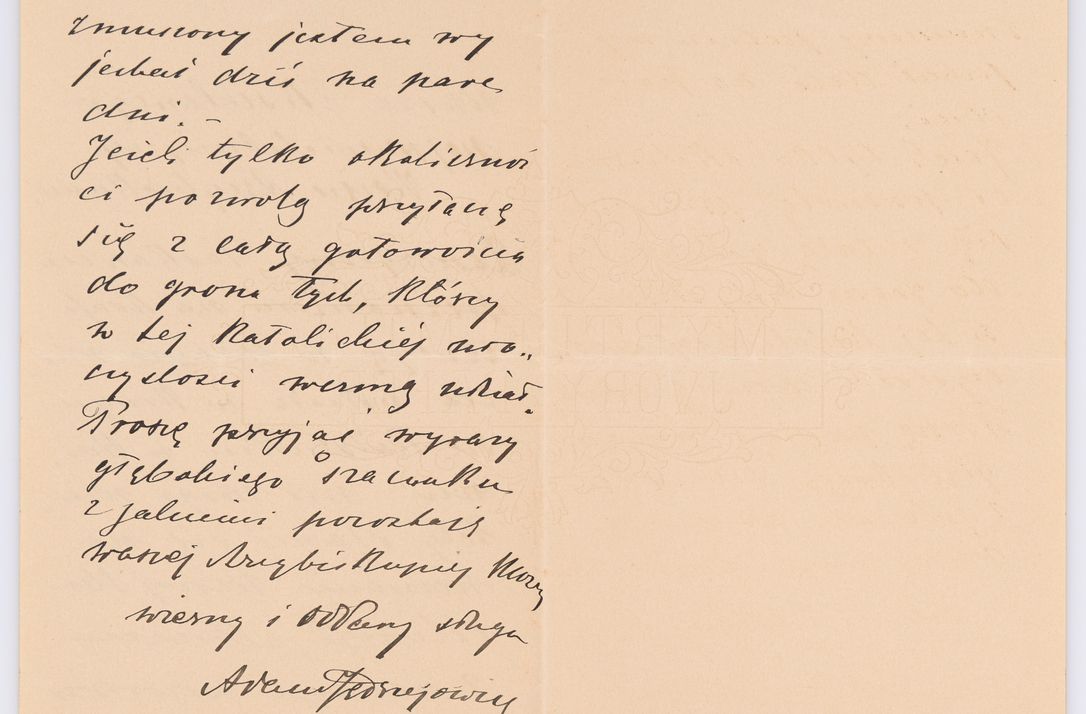 Zmuszony jestem wy
jechać dziś na parę
dni. –
Jeżeli tylko okolicznoś
ci pozwolą przyłączę
się z całą gotowością
do grona tych, którzy
w tej katolickiéj uro„
czystości wezmą udział.
Proszę przyjąć wyrazy
głębokiego szacunku
z jakiemi pozostaję
waszej Arcybiskupiej Mości
wierny i oddany sługa
Adam Jędrzejowicz